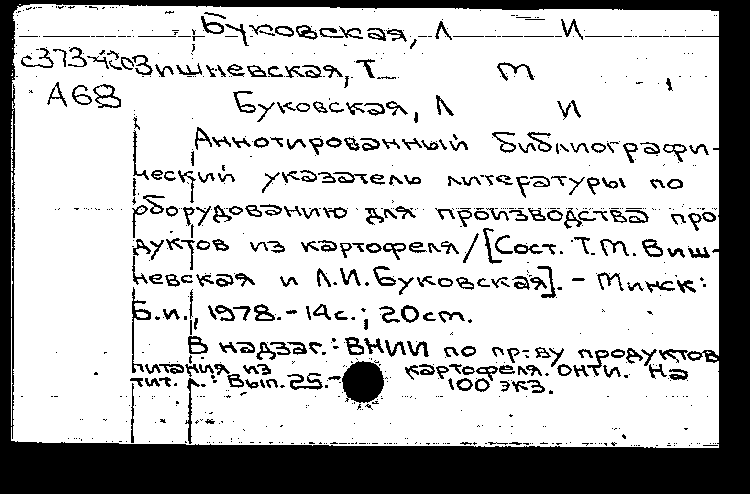 Буковская, Л И
с373-420 Вишневская, Т М
А68
Буковская, Л И
Аннотированный библиографи-
ческий указатель литературы по
оборудованию для производства про-
дуктов из картофеля/[Сост. Т.М. Виш-
невская и Л.И. Буковская]. - Минск:
Б.и., 1978. - 14с.; 20cm.
В надзаг.: ВНИИ по пр-ву продуктов
питания из картофеля. ОНТИ. На
тит. л.: Вып. 25.- 100 экз.